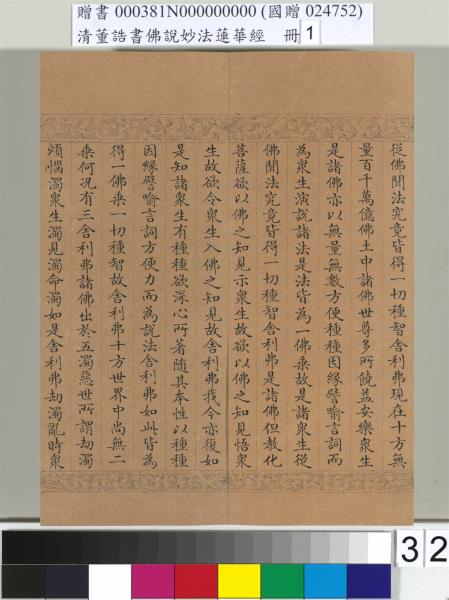 贈書 000381N000000000 (國贈 024752)
清董誥書佛說妙法蓮華經 冊 1
從佛聞法究竟皆得一切種智舍利弗現在十方無
量百千萬億佛土中諸佛世尊多所饒益安樂衆生
是諸佛亦以無量無數方便種種因緣譬喻言詞而
為衆生演說諸法是法皆為一佛乘故是諸衆生從
佛聞法究竟皆得一切種智舍利弗是諸佛但教化
菩薩欲以佛之知見示衆生故欲以佛之知見悟衆
生故欲令衆生入佛之知見故舍利弗我今亦復如
是知諸衆生有種種欲深心所著隨其本性以種種
因緣譬喻言詞方便力而為說法舍利弗如此皆為
得一佛乘一切種智故舍利弗十方世界中尚無二
乘何況有三舍利弗諸佛出於五濁惡世所謂劫濁
煩惱濁衆生濁見濁命濁如是舍利弗劫濁亂時衆
32